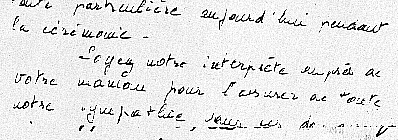 toute particulière aujourd'hui pendant
la cérémonie -
Soyez notre interprète auprès de
votre maman pour l'assurer de toute
notre sympathie,